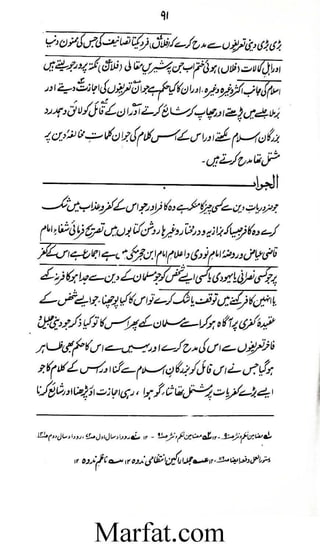 ۹۱
بڑی بڑی دینی تعریفوں سے مدح کرے کہ (فلاں) فرد یکتا تصانیف کی جس کی ممنون دنیا
اور اہل کمالات (فلاں) ہوئی ختم اب جن پہ شیریں مقالی (فلاں) نکتہ پرور جو یہ ہیں
اسلام کی جانب اکثر وغیرہ وغیرہ، اور ان کا کیا حکم ہے جو ان تعریفوں کی اجازت دیتے اور
برملا جلسے میں پڑھتے اور چھاپ کر شائع کرتے آور ان کے قائل کو لائق و ہمدرد
بزرگان اسلام لکھتے اور اس کے اس کلام کی جو ان کلمات مخالف دین پر
مشتمل تھا مدح کرتے ہیں۔
الجواب
جو ضروریات دین سے کسی چیز کا منکر ہے وہ کافر اور جو اس کے کفر و عذاب میں شک
کرے وہ کافر جیسا کہ بزازیہ و درمختار وغیرہا روشن کتابوں میں تصریح فرمائی شفاء امام
قاضی عیاض و روضہ امام نووی و اعلام امام ابن حجر مکی میں ہے اجماع ہے اس کے کفر
پر جو کسی نصرانی یا یہودی یا کسی ایسے شخص کو جو مسلمان کے دین سے جدا ہو کافر نہ کہے
یا انہیں کافر کہنے میں توقف یا شک کرے تو اس کا کیا پوچھنا، جو ایسے شخص کے
عقیدہ کفری پر آگاہ ہو کر اسے مسلمان کہے پھر اس کا تو کیا ذکر جو دینی جلیل
فاخر تعریفوں سے اس کی مدح کرے اور یہیں سے اس کا حکم بھی ظاہر
ہو گیا جس نے اس قائل کو بزرگان اسلام سے گنا اور اس کے کلام کا جو
ایسے بڑے کفریات پر مشتمل تھا ثناء گو ہوا، رہی اجازت اور پڑھنا اور شائع کرنا
Marfat.com